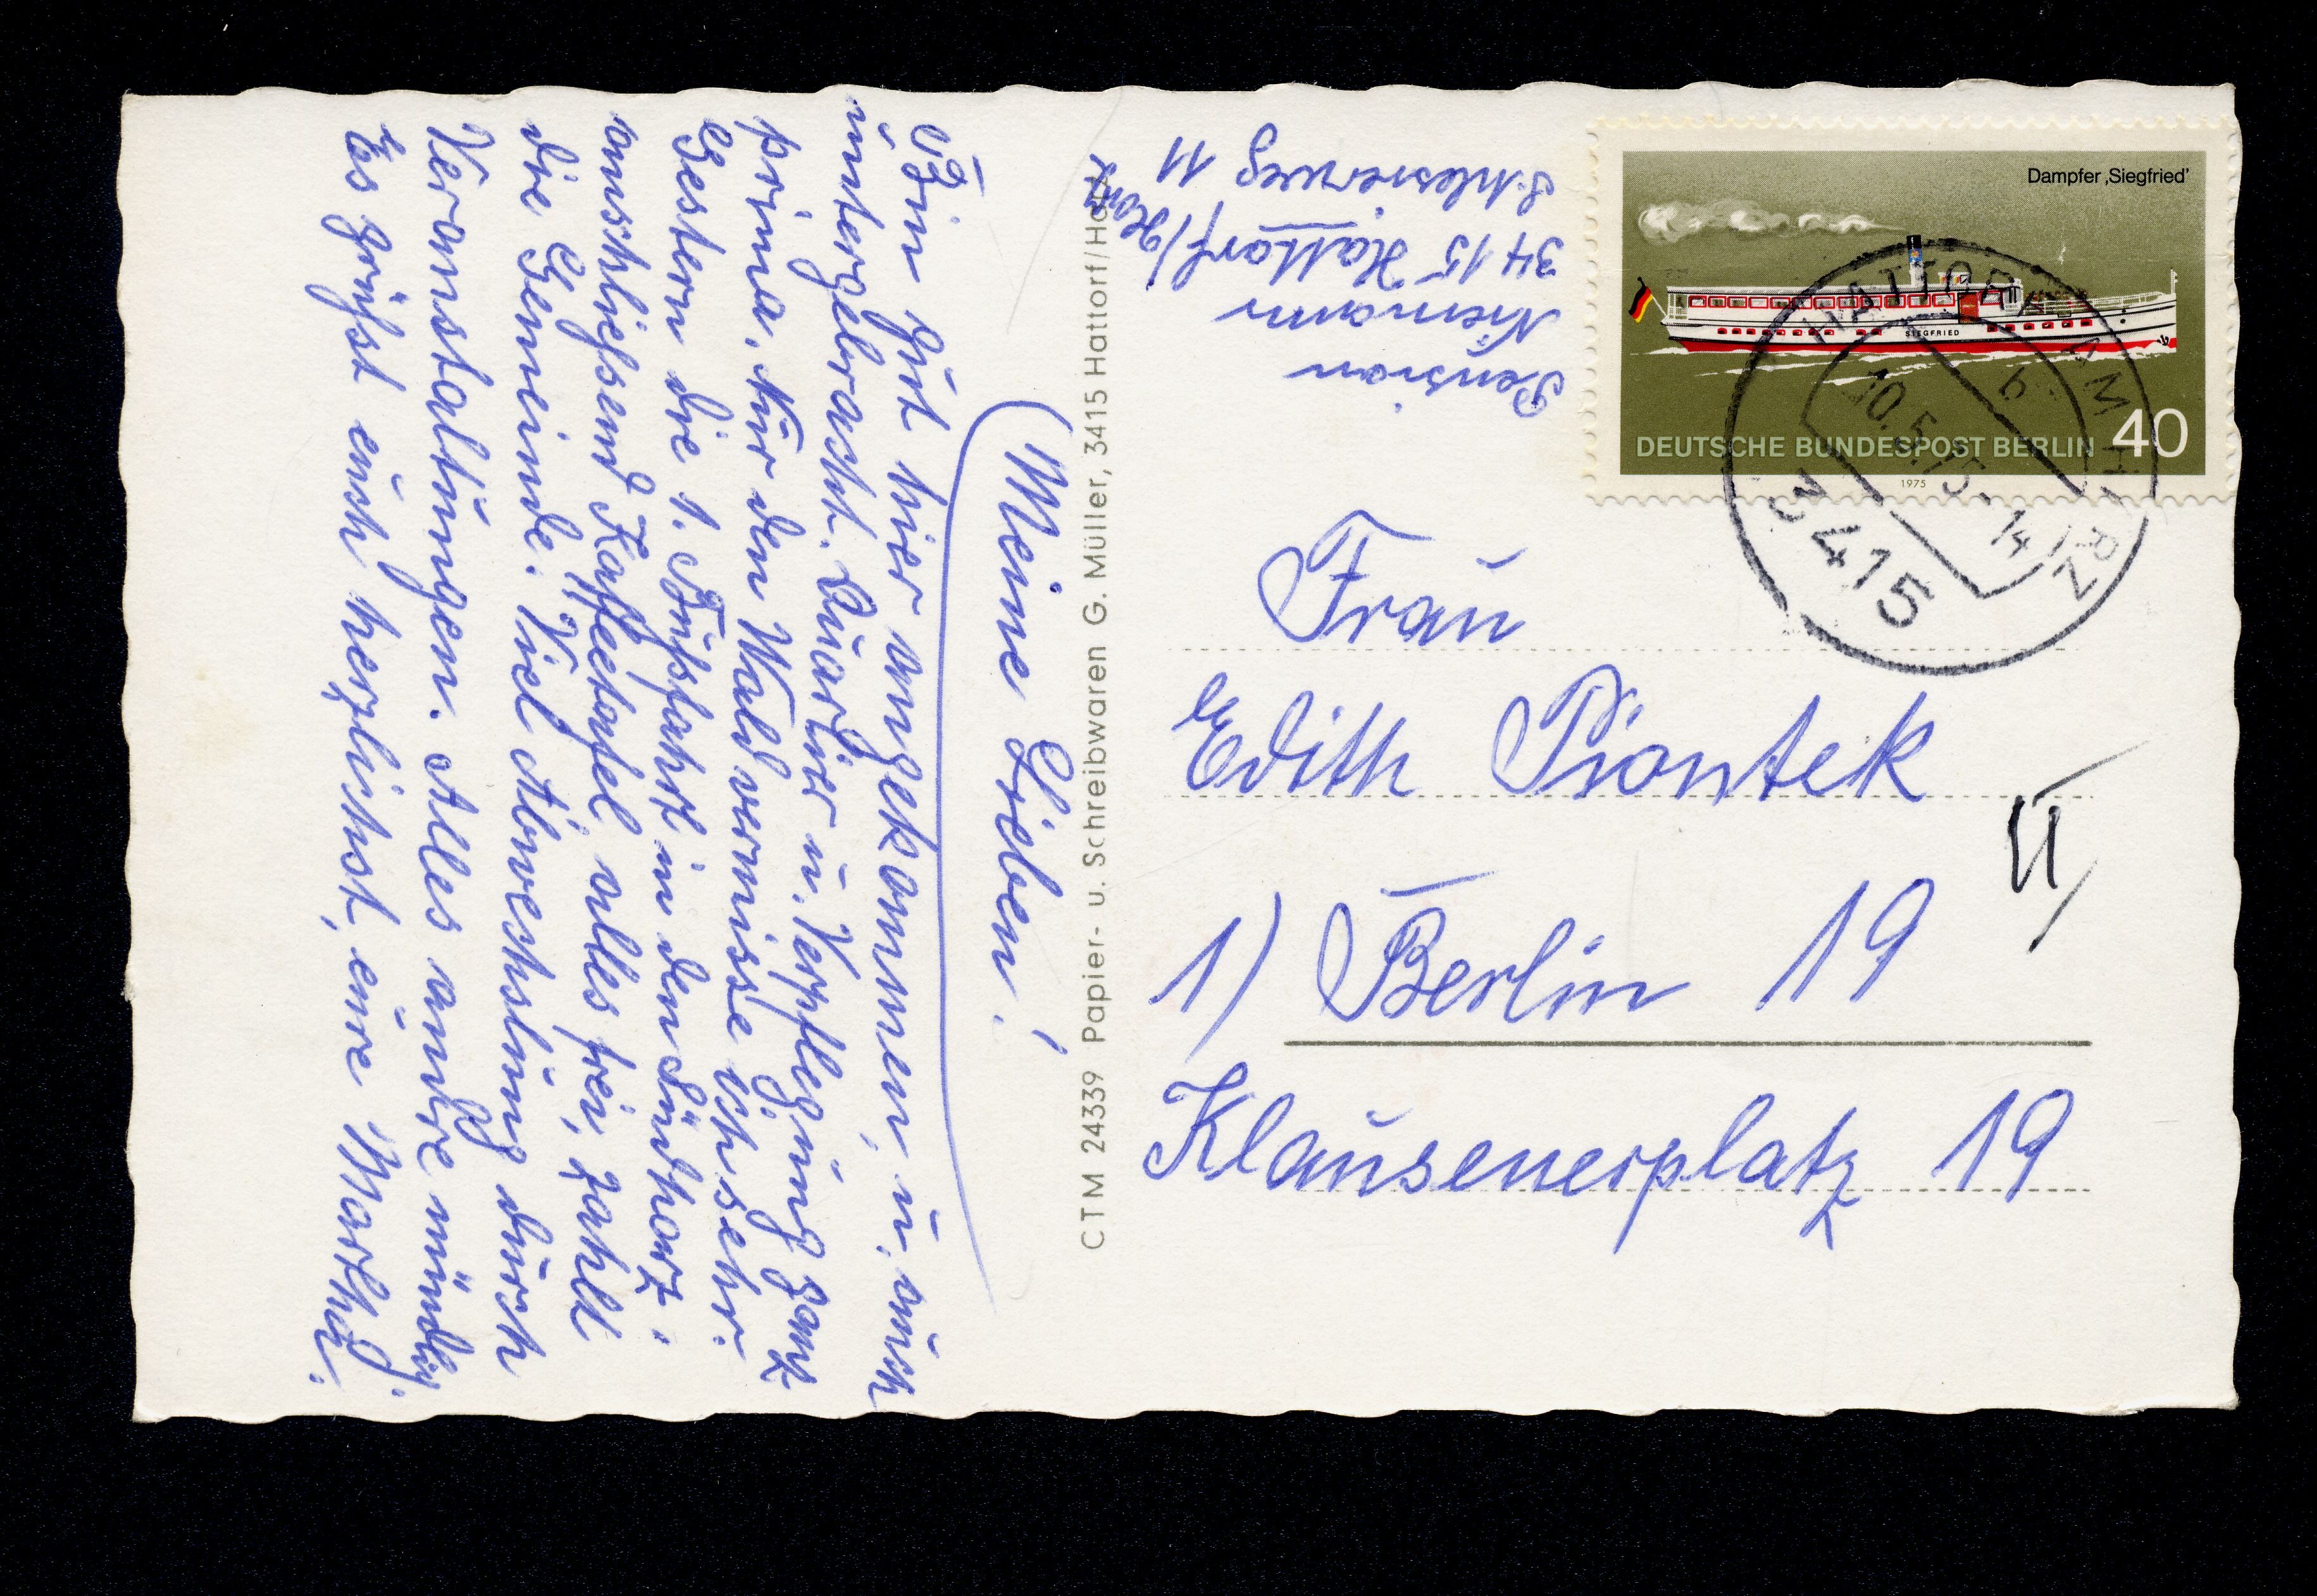 Meine Lieben!
Bin gut hier angekommen, u. auch
untergebracht. Quartier u. Verpflegung ganz
prima. Nur den Wald vermisse ich sehr.
Gestern die 1. Busfahrt in den Südharz.
anschließend Kaffeetafel, alles frei, zahlt
die Gemeinde. Viel Abwechslung durch
Veranstaltungen. Alles andre mündlich.
Es grüßt euch herzlichst, eure Martha.
CTM 24339 Papier- u. Schreibwaren G. Müller, 3415 Hattorf/Harz
Pension
Niemann
3415 Hattorf/Harz
Schlesierweg 11
Dampfer ‚Siegfried'
SIEGFRIED
DEUTSCHE BUNDESPOST BERLIN 40
1975
HATTORF AM HARZ
b
10.5.75.-14
3415
Frau
Edith Piontek
II
1) Berlin 19
Klausenerplatz 19